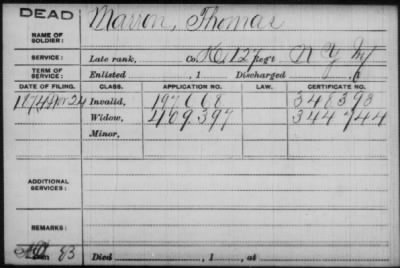 DEAD
NAME OF SOLDIER: Marron, Thomas
SERVICE: Late rank, Co. K, 127 Reg't N Y Inf
TERM OF SERVICE: Enlisted , 1 Discharged , 1
DATE OF FILING. CLASS. APPLICATION NO. LAW. CERTIFICATE NO.
1874 Invalid, 197668 348393
Widow, 409.397 344744
Minor,
ADDITIONAL SERVICES:
REMARKS:
83 Died , 1 , at